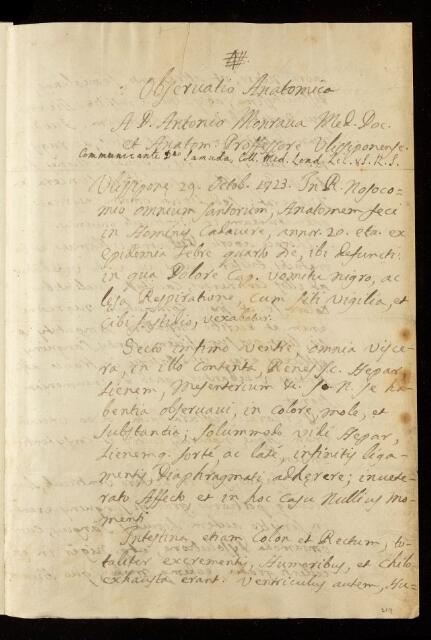 Observatio Anatomica
A D. Antonio Monrava Med. Doc.
et Anatom: Professore Ulyssiponense.
Communicante Dno Samuda, Coll. Med. Lond. Lic. & S. R. S.
Ulyssipone 29. Octob. 1723. In R. Nosoco-
mio omnium sanctorum, Anatomem feci
in Hominis Cadavere, annor. 20. eta. ex
Epidemia Febre quarto die, ibi defuncti:
in qua Dolore Cap. vomitu nigro, ac
læsa Respiratione, cum siti vigilia, et
Cibi fastidio, vexabatur.
Secto infimo ventre, omnia visce-
ra, in illo contenta, Renes sc. Hepar
Lienem, Mesenterium &c. S. N. se ha-
bentia observavi, in colore, mole, et
substantia; solummodo vidi Hepar,
Lienemq. forte, ac late, infinitis liga-
mentis, Diaphragmati, adhærere; invete-
rato Affectu et in hoc Casu Nullius mo-
menti.
Intestina, etiam Colon et Rectum, to-
taliter excrementis, Humoribus, et Chilo
exhausta erant. Ventriculus autem, Hu-
219